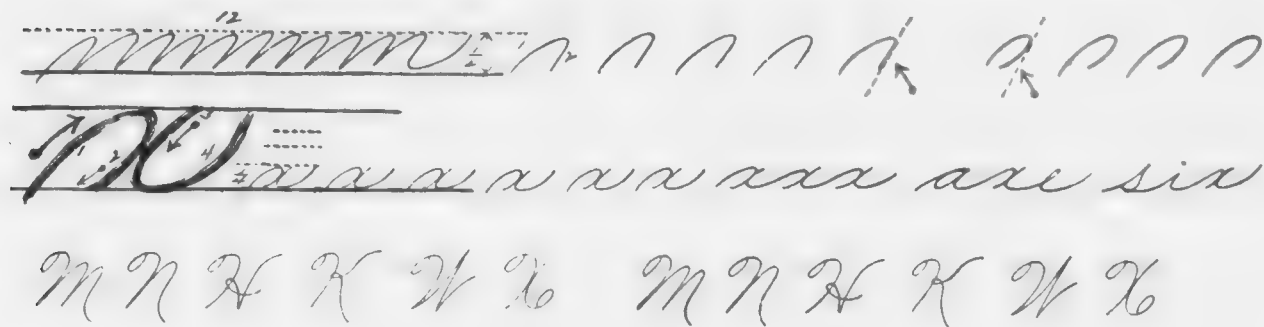 12
1 2 3 4 x x x x x x xxx axe six
M N H K W X M N H K W X